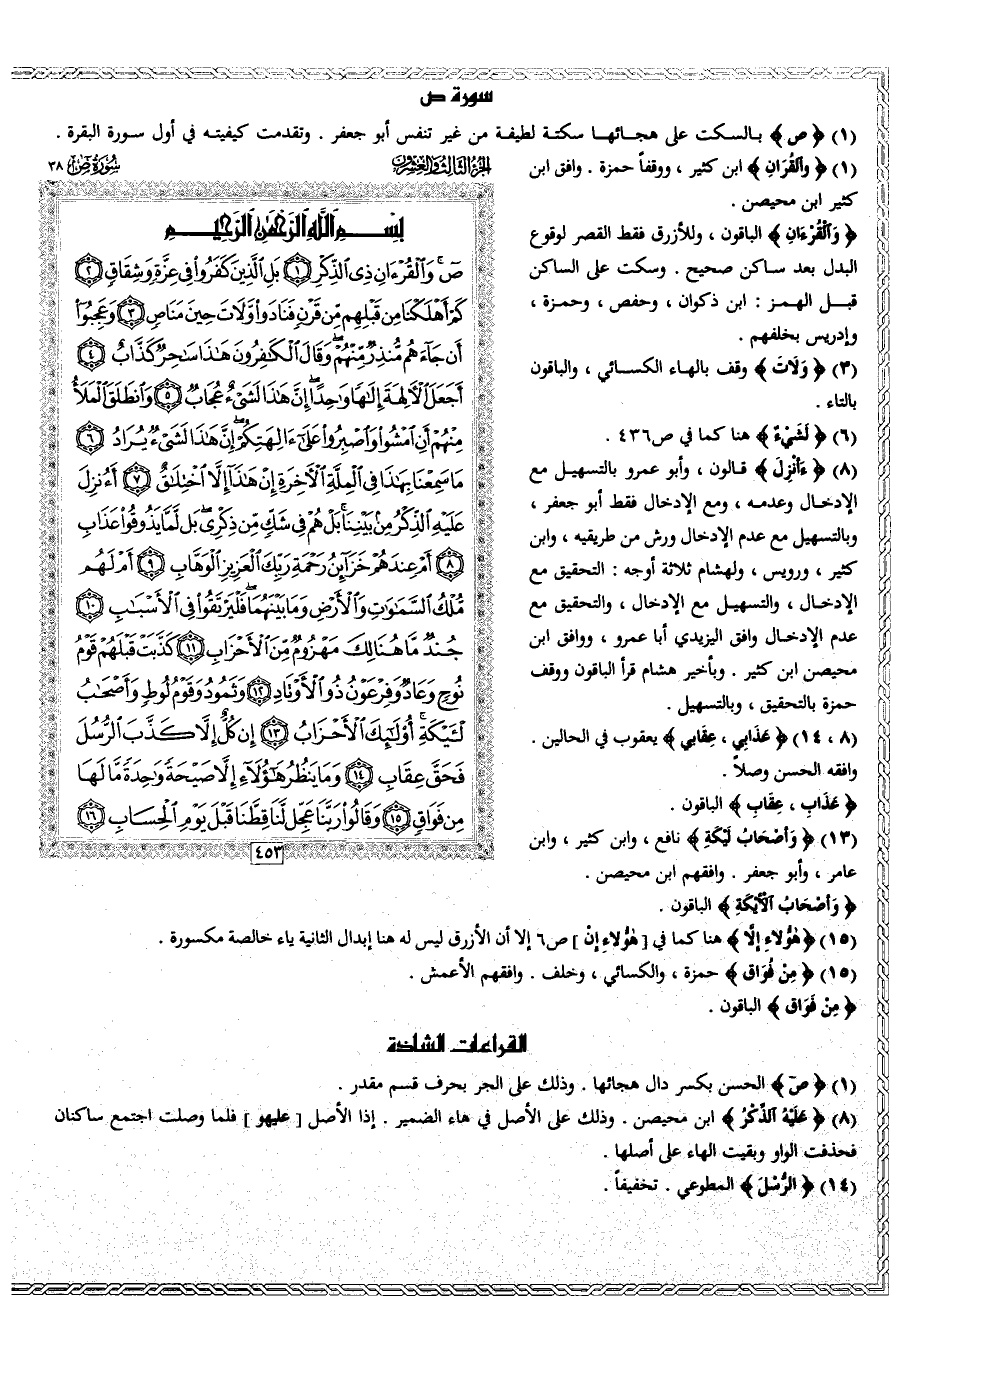 سورة ص
(١) ﴿ ص ﴾ بالسكت على هجائها سكتة لطيفة من غير تنفس أبو جعفر . وتقدمت كيفيته في أول سورة البقرة .
(١) ﴿ وَالقُرَانِ ﴾ ابن كثير ، ووقفاً حمزة . وافق ابن
كثير ابن محيصن .
﴿ وَالْقُرْءَانِ ﴾ الباقون ، وللأزرق فقط القصر لوقوع
البدل بعد ساكن صحيح . وسكت على الساكن
قبل الهمز : ابن ذكوان ، وحفص ، وحمزة ،
وإدريس بخلفهم .
(٣) ﴿ وَلَاتَ ﴾ وقف بالهاء الكسائي ، والباقون
بالتاء .
(٦) ﴿ لَشَيْءٌ ﴾ هنا كما في ص٤٣٦ .
(٨) ﴿ ءَأُنْزِلَ ﴾ قالون ، وأبو عمرو بالتسهيل مع
الإدخال وعدمه ، ومع الإدخال فقط أبو جعفر ،
وبالتسهيل مع عدم الإدخال ورش من طريقيه ، وابن
كثير ، ورويس ، ولهشام ثلاثة أوجه : التحقيق مع
الإدخال ، والتسهيل مع الإدخال ، والتحقيق مع
عدم الإدخال وافق اليزيدي أبا عمرو ، ووافق ابن
محيصن ابن كثير . وبأخير هشام قرأ الباقون ووقف
حمزة بالتحقيق ، وبالتسهيل .
(٨ ، ١٤) ﴿ عَذَابِي ، عِقَابِي ﴾ يعقوب في الحالين .
وافقه الحسن وصلاً .
﴿ عَذَابِ ، عِقَابِ ﴾ الباقون .
(١٣) ﴿ وَأَصْحَابُ لَيْكَةَ ﴾ نافع ، وابن كثير ، وابن
عامر ، وأبو جعفر . وافقهم ابن محيصن .
﴿ وَأَصْحَابُ الْأَيْكَةِ ﴾ الباقون .
(١٥) ﴿ هَٰؤُلَاءِ إِلَّا ﴾ هنا كما في [ هَٰؤُلَاءِ إِنْ ] ص٦ إلا أن الأزرق ليس له هنا إبدال الثانية ياء خالصة مكسورة .
(١٥) ﴿ مِنْ فُوَاق ﴾ حمزة ، والكسائي ، وخلف . وافقهم الأعمش .
﴿ مِنْ فَوَاق ﴾ الباقون .
القراءات الشاذة
(١) ﴿ صَ ﴾ الحسن بكسر دال هجائها . وذلك على الجر بحرف قسم مقدر .
(٨) ﴿ عَلَيْهُ الذِّكْرُ ﴾ ابن محيصن . وذلك على الأصل في هاء الضمير . إذا الأصل [ عليهو ] فلما وصلت اجتمع ساكنان
فحذفت الواو وبقيت الهاء على أصلها .
(١٤) ﴿ الرُّسْلَ ﴾ المطوعي . تخفيفاً .
الجزء الثالث والعشرون
سورة ص ٣٨
بِسْمِ اللَّهِ الرَّحْمَٰنِ الرَّحِيمِ
صٓ ۚ وَالْقُرْءَانِ ذِي الذِّكْرِ ١ بَلِ الَّذِينَ كَفَرُوا فِي عِزَّةٍ وَشِقَاقٍ ٢
كَمْ أَهْلَكْنَا مِن قَبْلِهِم مِّن قَرْنٍ فَنَادَوا وَّلَاتَ حِينَ مَنَاصٍ ٣ وَعَجِبُوا
أَن جَاءَهُم مُّنذِرٌ مِّنْهُمْ ۖ وَقَالَ الْكَٰفِرُونَ هَٰذَا سَٰحِرٌ كَذَّابٌ ٤
أَجَعَلَ الْآلِهَةَ إِلَٰهًا وَٰحِدًا ۖ إِنَّ هَٰذَا لَشَيْءٌ عُجَابٌ ٥ وَانطَلَقَ الْمَلَأُ
مِنْهُمْ أَنِ امْشُوا وَاصْبِرُوا عَلَىٰ ءَالِهَتِكُمْ ۖ إِنَّ هَٰذَا لَشَيْءٌ يُرَادُ ٦
مَا سَمِعْنَا بِهَٰذَا فِي الْمِلَّةِ الْآخِرَةِ إِنْ هَٰذَا إِلَّا اخْتِلَٰقٌ ٧ أَءُنزِلَ
عَلَيْهِ الذِّكْرُ مِن بَيْنِنَا ۚ بَلْ هُمْ فِي شَكٍّ مِّن ذِكْرِي ۖ بَل لَّمَّا يَذُوقُوا عَذَابِ
٨ أَمْ عِندَهُمْ خَزَائِنُ رَحْمَةِ رَبِّكَ الْعَزِيزِ الْوَهَّابِ ٩ أَمْ لَهُم
مُّلْكُ السَّمَٰوَٰتِ وَالْأَرْضِ وَمَا بَيْنَهُمَا ۖ فَلْيَرْتَقُوا فِي الْأَسْبَٰبِ ١٠
جُندٌ مَّا هُنَالِكَ مَهْزُومٌ مِّنَ الْأَحْزَابِ ١١ كَذَّبَتْ قَبْلَهُمْ قَوْمُ
نُوحٍ وَعَادٌ وَفِرْعَوْنُ ذُو الْأَوْتَادِ ١٢ وَثَمُودُ وَقَوْمُ لُوطٍ وَأَصْحَٰبُ
لْـَٔيْكَةِ ۚ أُولَٰئِكَ الْأَحْزَابُ ١٣ إِن كُلٌّ إِلَّا كَذَّبَ الرُّسُلَ
فَحَقَّ عِقَابِ ١٤ وَمَا يَنظُرُ هَٰؤُلَاءِ إِلَّا صَيْحَةً وَٰحِدَةً مَّا لَهَا
مِن فَوَاقٍ ١٥ وَقَالُوا رَبَّنَا عَجِّل لَّنَا قِطَّنَا قَبْلَ يَوْمِ الْحِسَابِ ١٦
٤٥٣